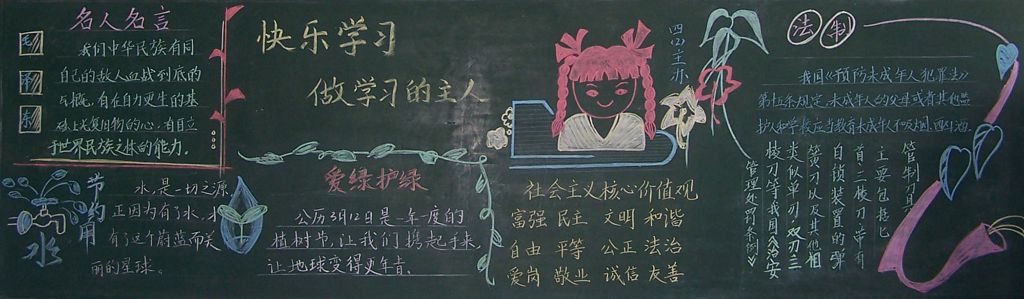 名人名言
毛
泽
东
我们中华民族有同
自己的敌人血战到底的
气概，有在自力更生的基
础上光复旧物的心，有自立
于世界民族之林的能力。
快乐学习
做学习的主人
四(4)主办
法制
我国《预防未成年人犯罪法》
第十五条规定，未成年人的父母或者其他监
护人和学校应当教育未成年人不吸烟、酗酒
管制刀具
主要包括匕
首三棱刀带有
自锁装置的弹
簧刀以及其他相
类似单刃双刃三
棱刀等我国《治安
管理处罚条例》
节约用水
水，是一切之源
正因为有了水，才
有了这个蔚蓝而美
丽的星球。
爱绿护绿
公历3月12日是一年一度的
植树节，让我们携起手来，
让地球变得更年青。
社会主义核心价值观
富强 民主 文明 和谐
自由 平等 公正 法治
爱岗 敬业 诚信 友善